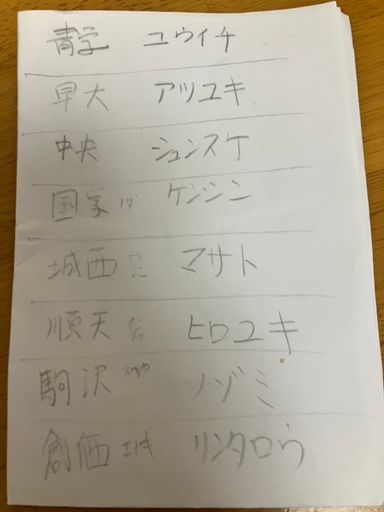 青学 ユウイチ
早大 アツユキ
中央 シュンスケ
国学 ケンシン
城西 マサト
順天 ヒロユキ
駒沢 ノゾミ
創価 リンタロウ